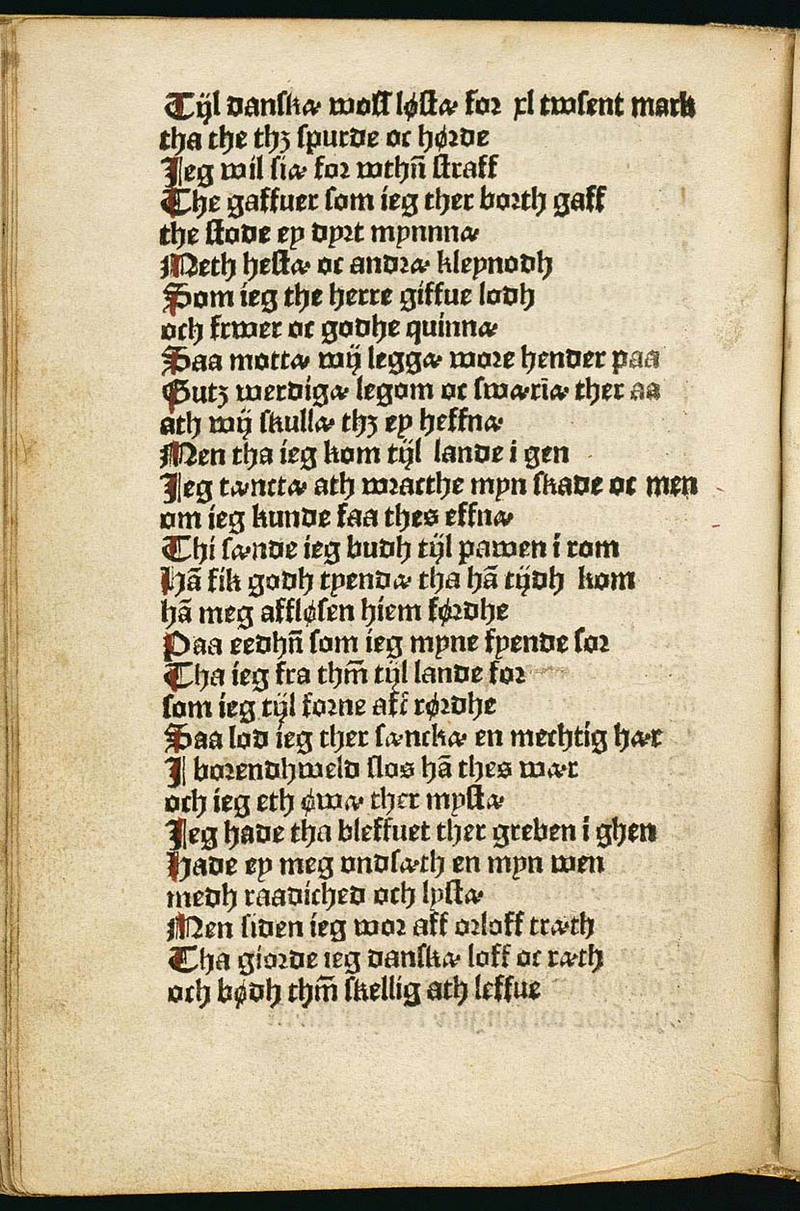 Tijl danskæ woll løstæ for xl twsent mark
tha the thꝫ spurde oc hørde
Jeg wil siæ for wthn̄ straff
The gaffuer som ieg ther borth gaff
the stode ey dyrt mynnnæ
Meth hestæ oc andræ kleynodh
Som ieg the herre giffue lodh
och frwer oc godhe quinnæ
Saa mottæ wij leggæ wore hender paa
Gutꝫ werdigæ legom oc swærīæ ther aa
ath wij skullæ thꝫ ey heffnæ
Men tha ieg kom tijl lande i gen
Jeg tænctæ ath wracthe myn skade oc men
om ieg kunde faa thes effnæ
Thi sænde ieg budh tijl pawen i rom
Hā fik godh tyendæ tha hā tijdh kom
hā meg affløsen hiem førdhe
Paa eedhn̄ som ieg myne fyende sor
Tha ieg fra thm̄ tijl lande for
som ieg tijl forne aff rørdhe
Saa lod ieg ther sænckæ en mechtig hær
J borendhweld slos hā thes wær
och ieg eth øwæ ther mystæ
Jeg hade tha bleffuet ther greben i ghen
Hade ey meg vndsæth en myn wen
medh raadiched och lystæ
Men siden ieg wor aff orloff træth
Tha giorde ieg danskæ loff oc ræth
och bødh thm̄ skellig ath leffue